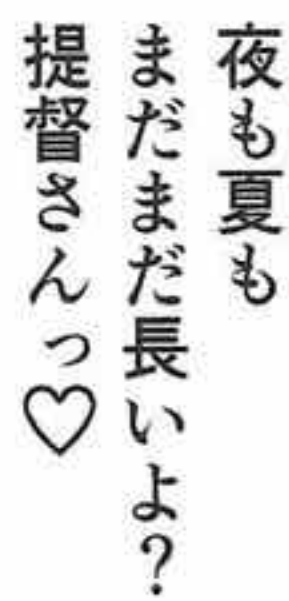 夜も夏も
まだまだ長いよ？
提督さんっ♡